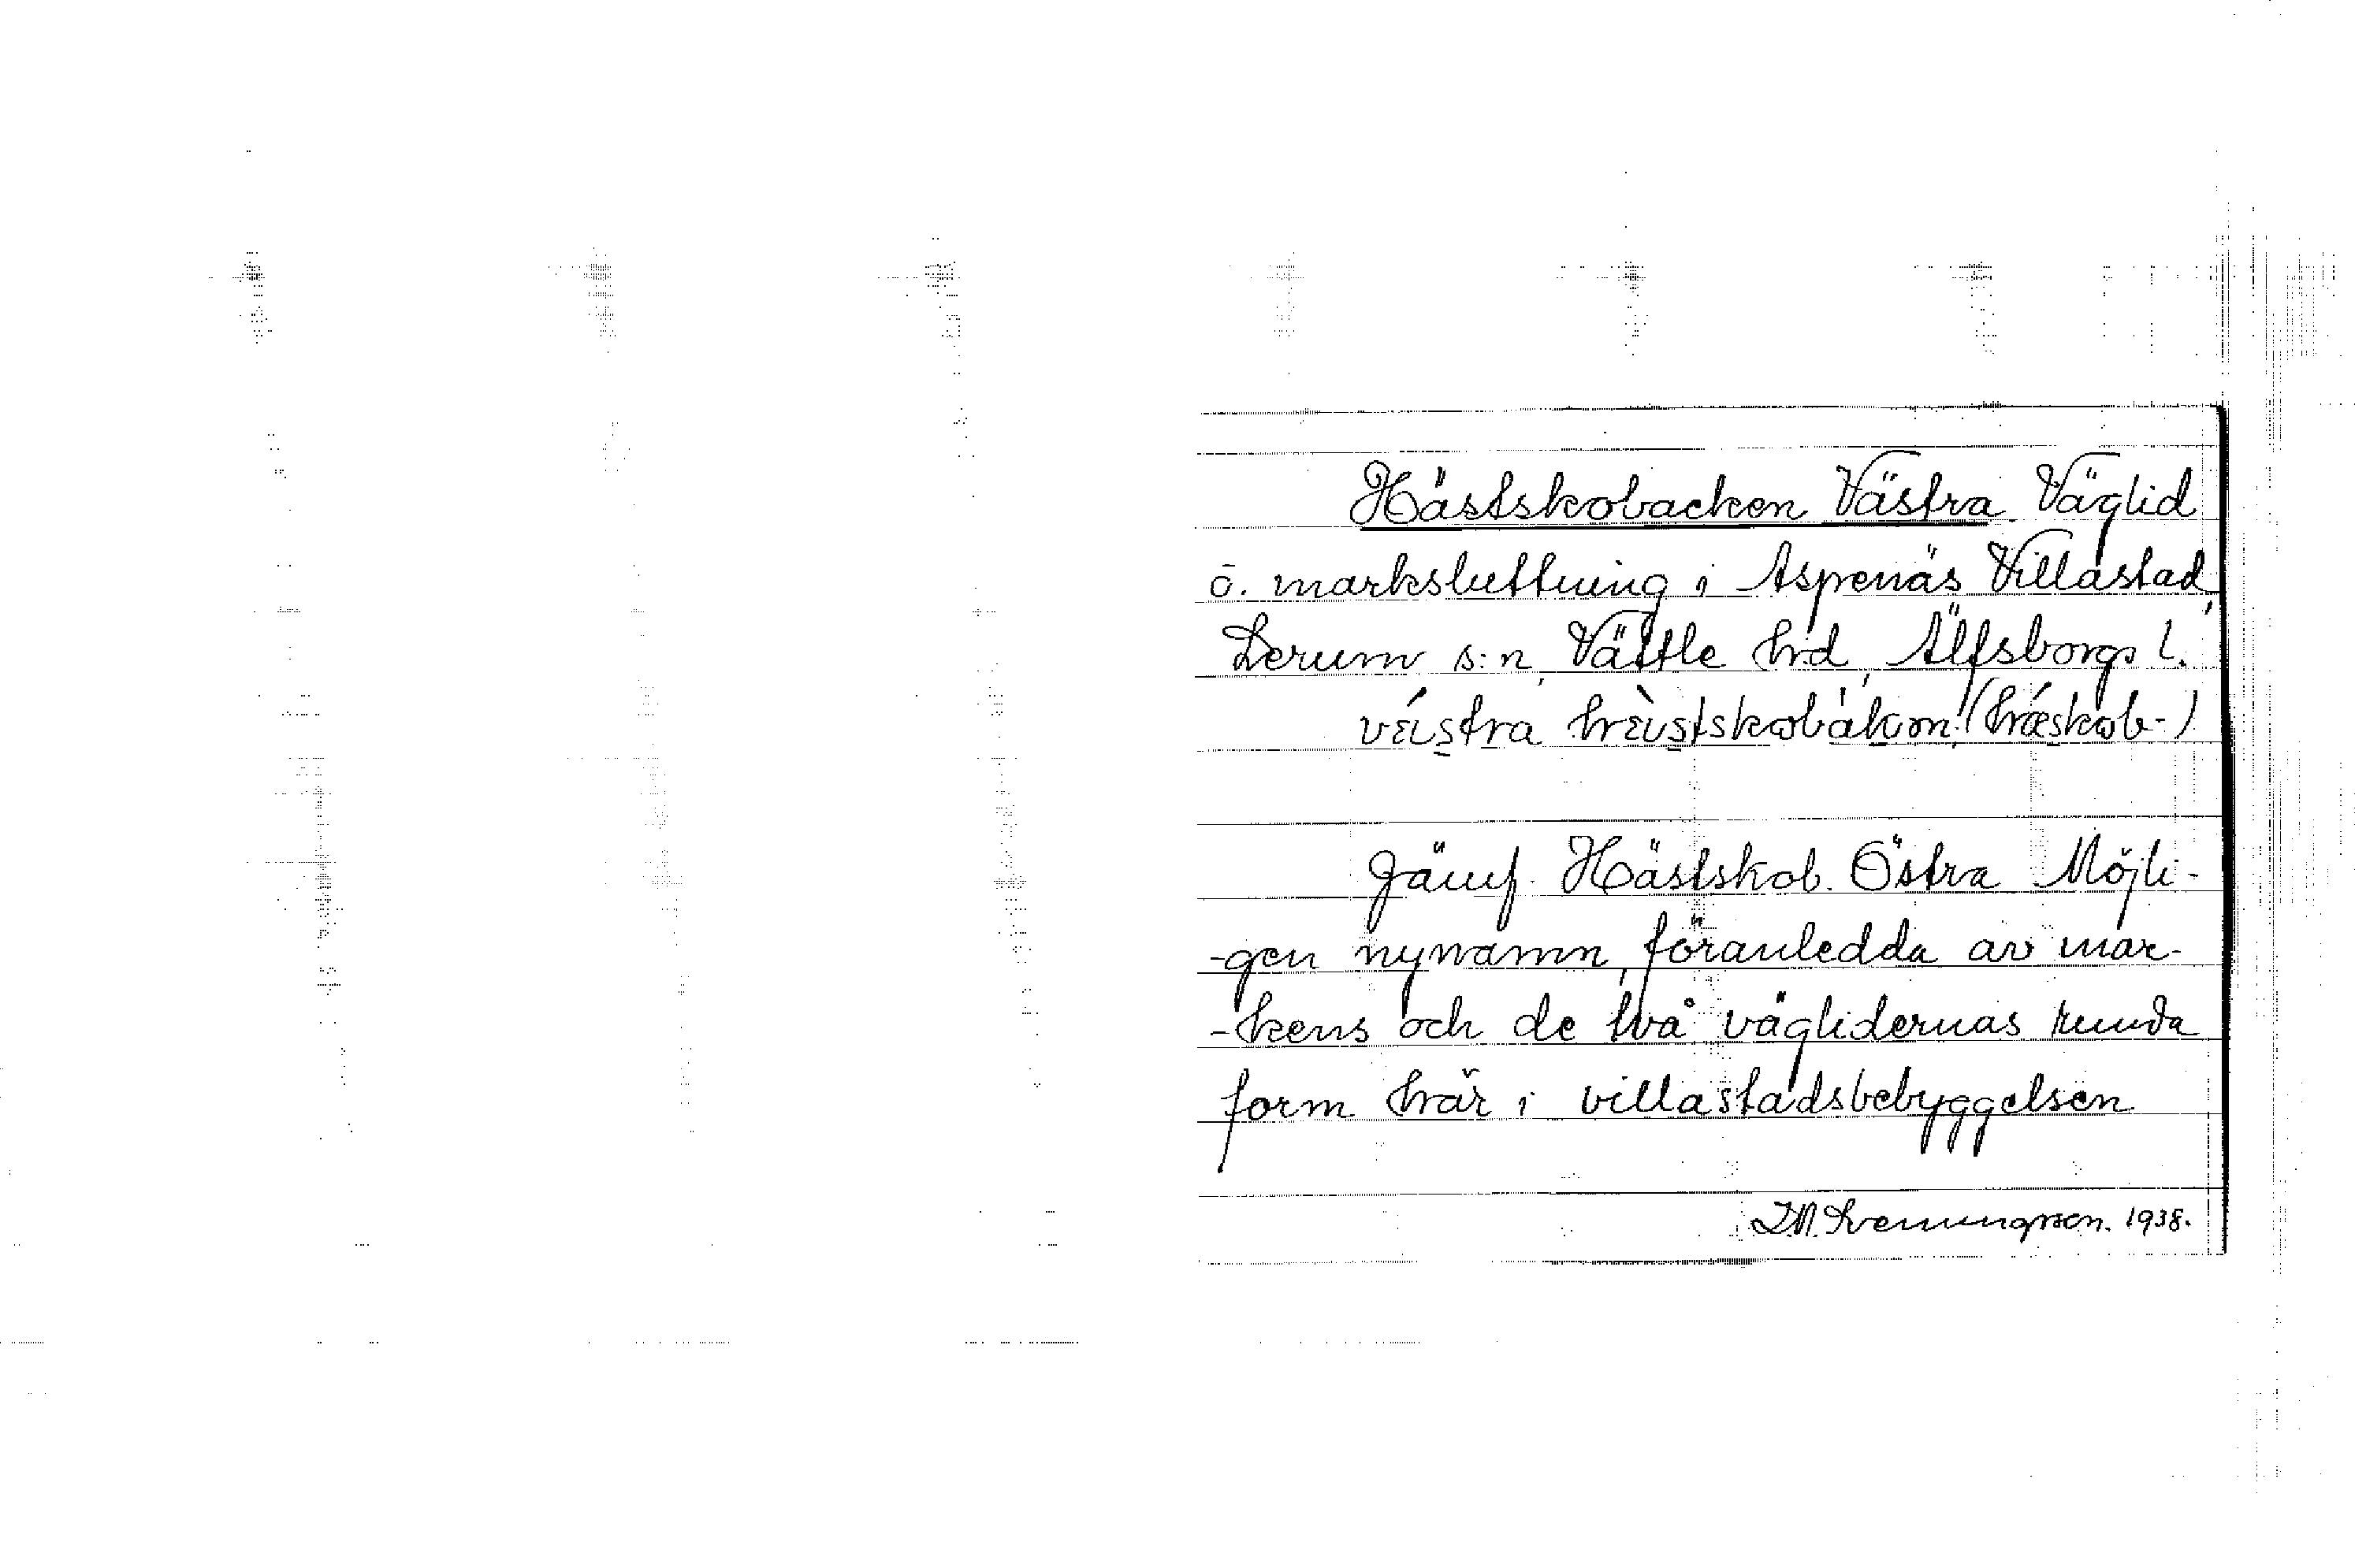 Hästskobacken Västra Väglid
o. marksluttning i Aspenäs Villastad,
Lerum s:n, Vättle hd, Älfsborgs l.
västra
Jämf. Hästskob. Östra Möjli-
-gen nynamn, föranledda av mar-
-kens och de två väglidernas runda
form här i villastadsbebyggelsen
1938.